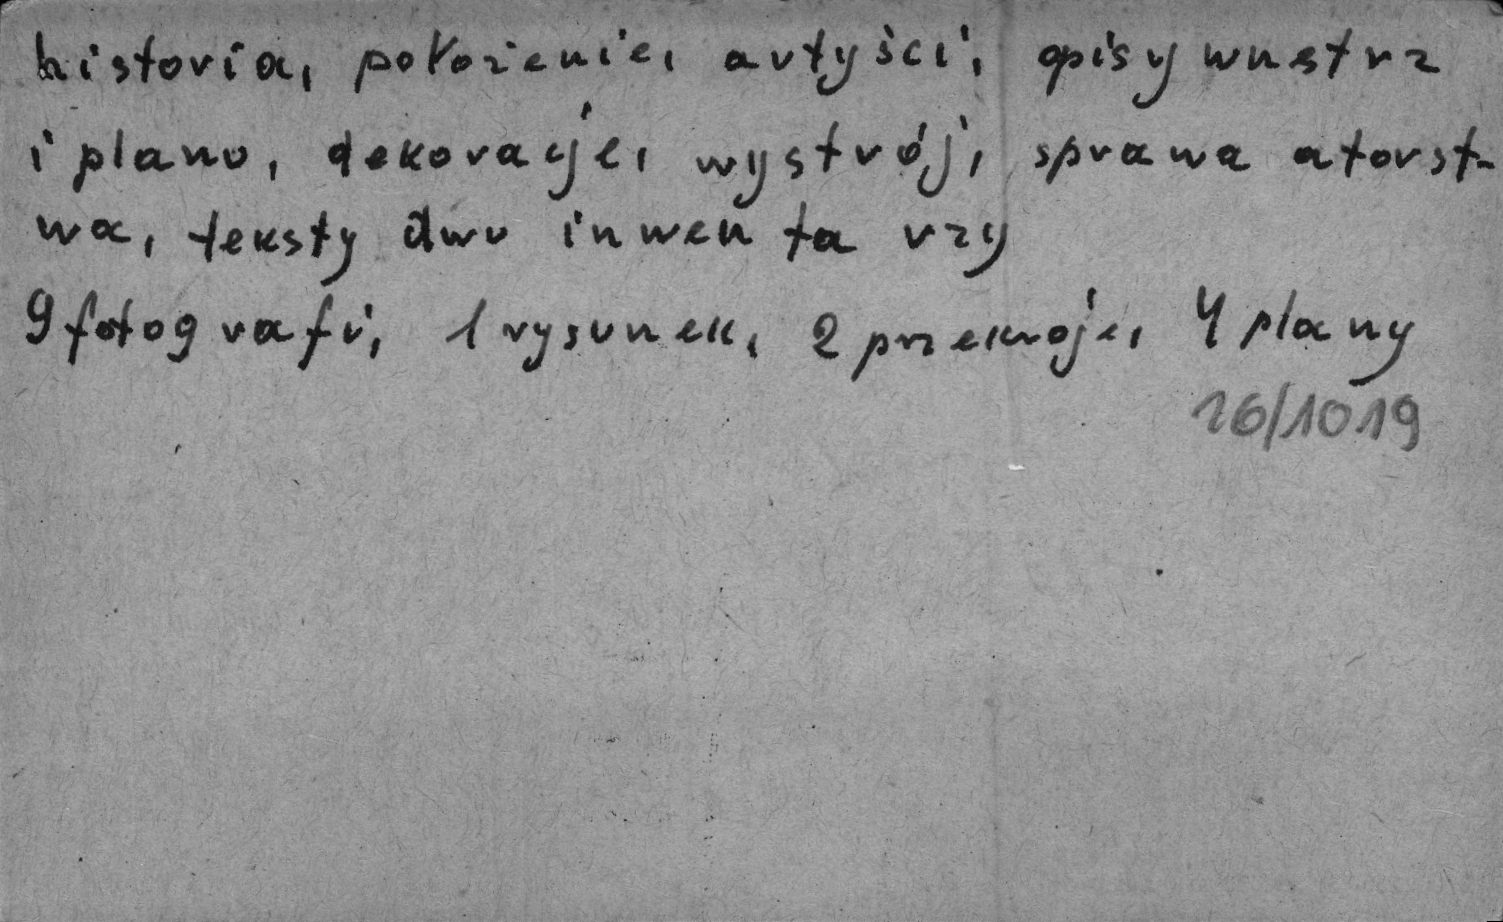 historia, położenie, artyści, opisy wnętrz
i planu, dekoracje, wystrój, sprawa atorst-
wa, teksty dwu inwentarzy
9 fotografii, 1 rysunek, 2 przekroje, 4 plany
16/1019